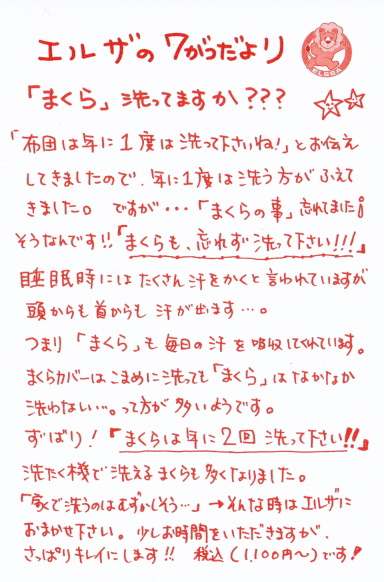 エルザの7がつだより
ELSBA
「まくら」洗ってますか???
「布団は年に1度は洗って下さいね!」とお伝え
してきましたので、年に1度は洗う方がふえて
きました。ですが・・・「まくらの事」忘れてました!
そうなんです!!「まくらも、忘れず洗って下さい!!!」
睡眠時にはたくさん汗をかくと言われていますが
頭からも首からも汗が出ます…。
つまり「まくら」も毎日の汗を吸収してくれています。
まくらカバーはこまめに洗っても「まくら」はなかなか
洗わない…。って方が多いようです。
ずばり!「まくらは年に2回洗って下さい!!」
洗たく機で洗えるまくらも多くなりました。
「家で洗うのはむずかしそう…」→そんな時はエルザに
おまかせ下さい。少しお時間をいただきますが、
さっぱりキレイにします!!税込(1,100円〜)です!